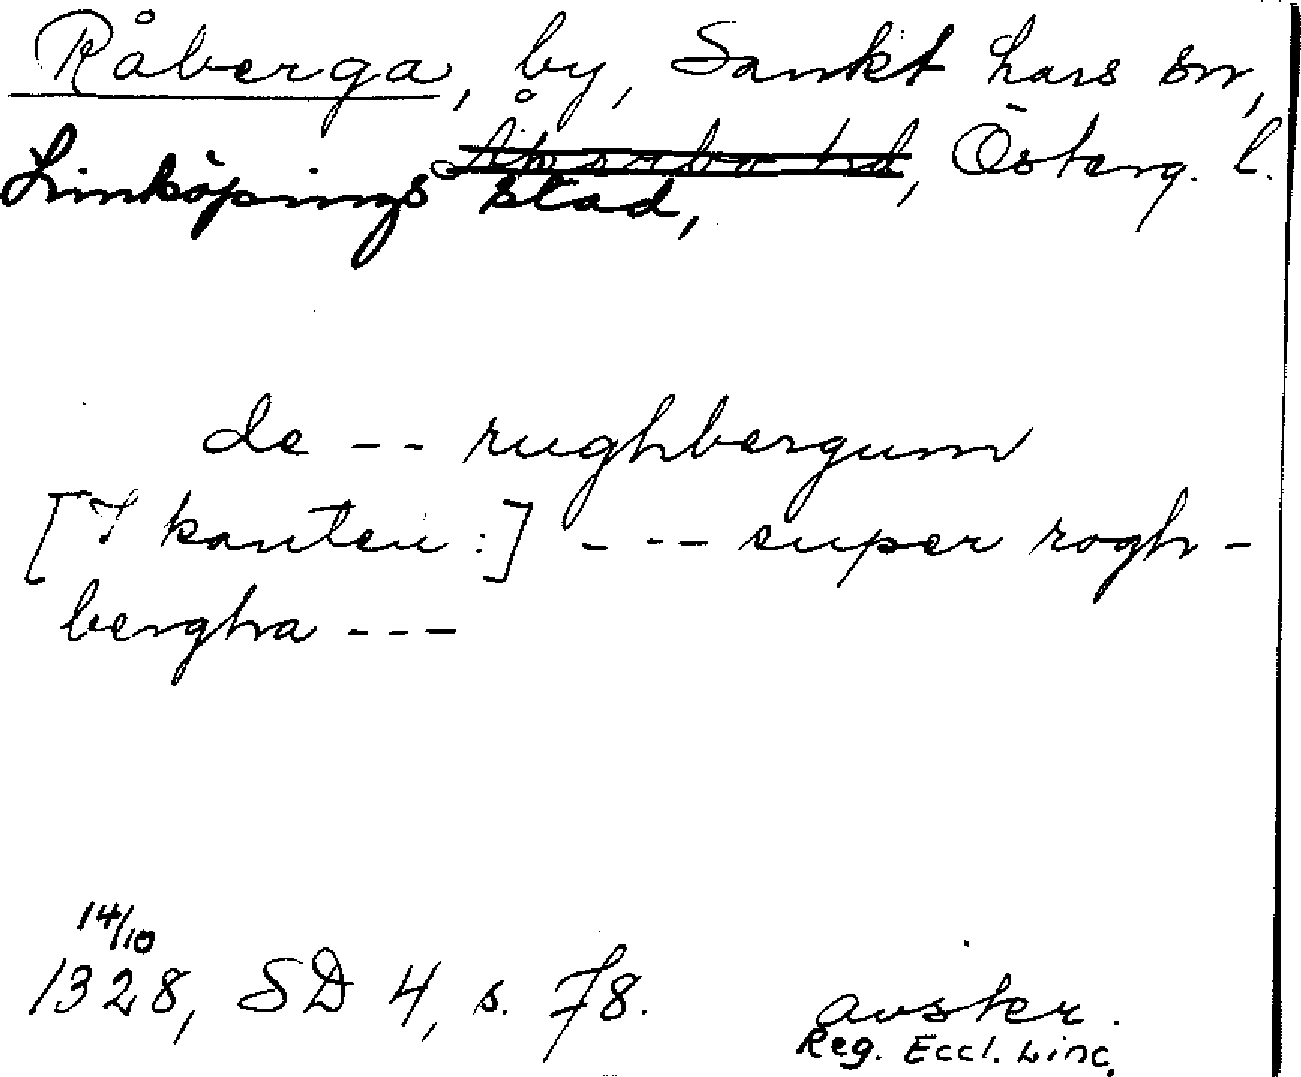 Råberga, by, Sankt Lars sn,
Linköpings stad, Åkerbo hd, Österg. l.
de -- rughbergum
[I kanten:] --- super rogh-
bergha ---
14/10
1328, SD 4, s. 78. avskr.
Reg. Eccl. Linc.